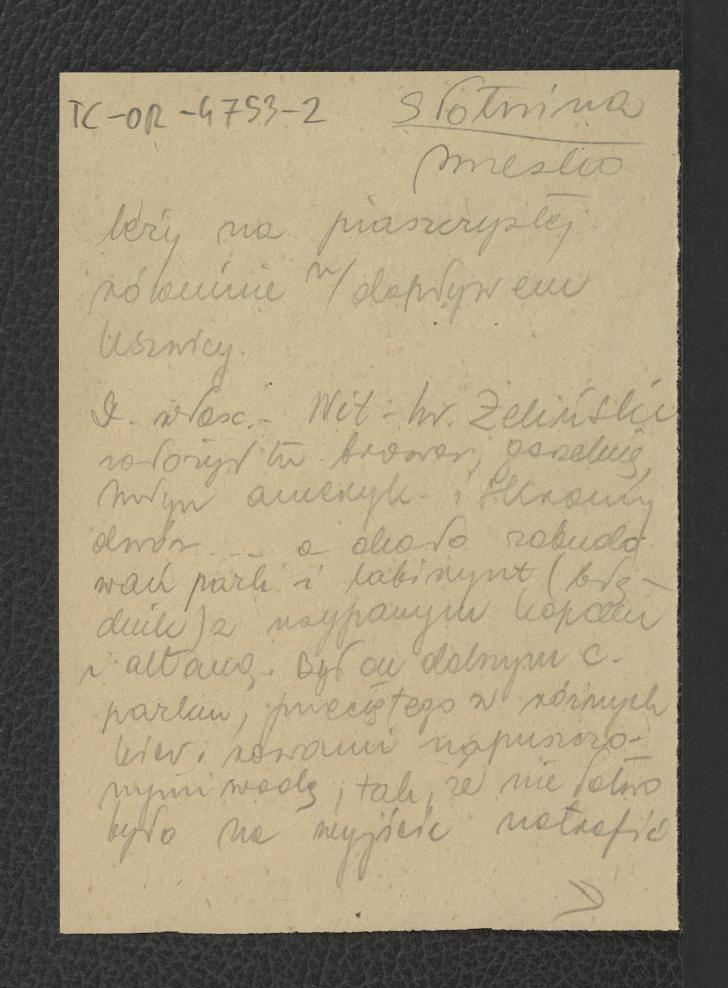 TC-OR-4753-2 Słotwina
Brzesko
leży na piaszczystej
równinie n/ dopływem
Uszwicy.
D. właśc. - Wit - hr. Żeliński
założył tu browar, gorzelnię,
młyn ameryk. i skromny
dwór ... a około zabudo
wań park i labirynt (błę-
dnik) z usypanym kopcem
i altaną. Był on dalszym c.
parku, przeciętego w różnych
kier. rowami napuszczo-
nymi wodą, tak, że nie łatwo
było na wyjście natrafić